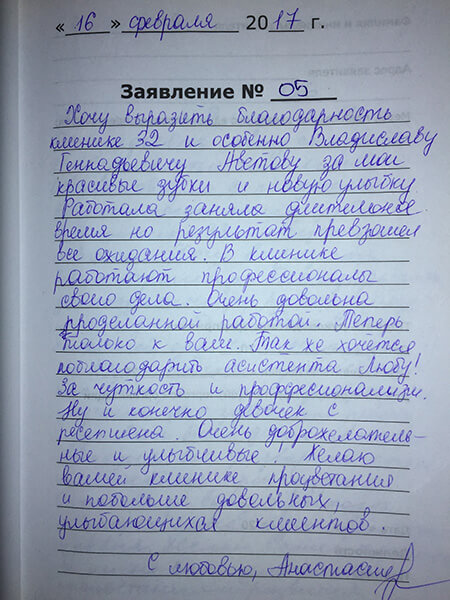 « 16 » февраля 2017 г.
Заявление № 05
Хочу выразить благодарность
клинике 32 и особенно Владиславу
Геннадьевичу Автову за мои
красивые зубки и новую улыбку
Работала заняла длительное
время но результат превзошел
все ожидания. В клинике
работают профессионалы
своего дела. Очень довольна
проделанной работой. Теперь
только к вам. Так же хочется
поблагодарить асистента Любу!
За чуткость и профессионализм.
Ну и конечно девочек с
ресепшена. Очень доброжелатель-
ные и улыбчивые! Желаю
вашей клинике процветания
и побольше довольных,
улыбающихся клиентов.
С любовью, Анастасия